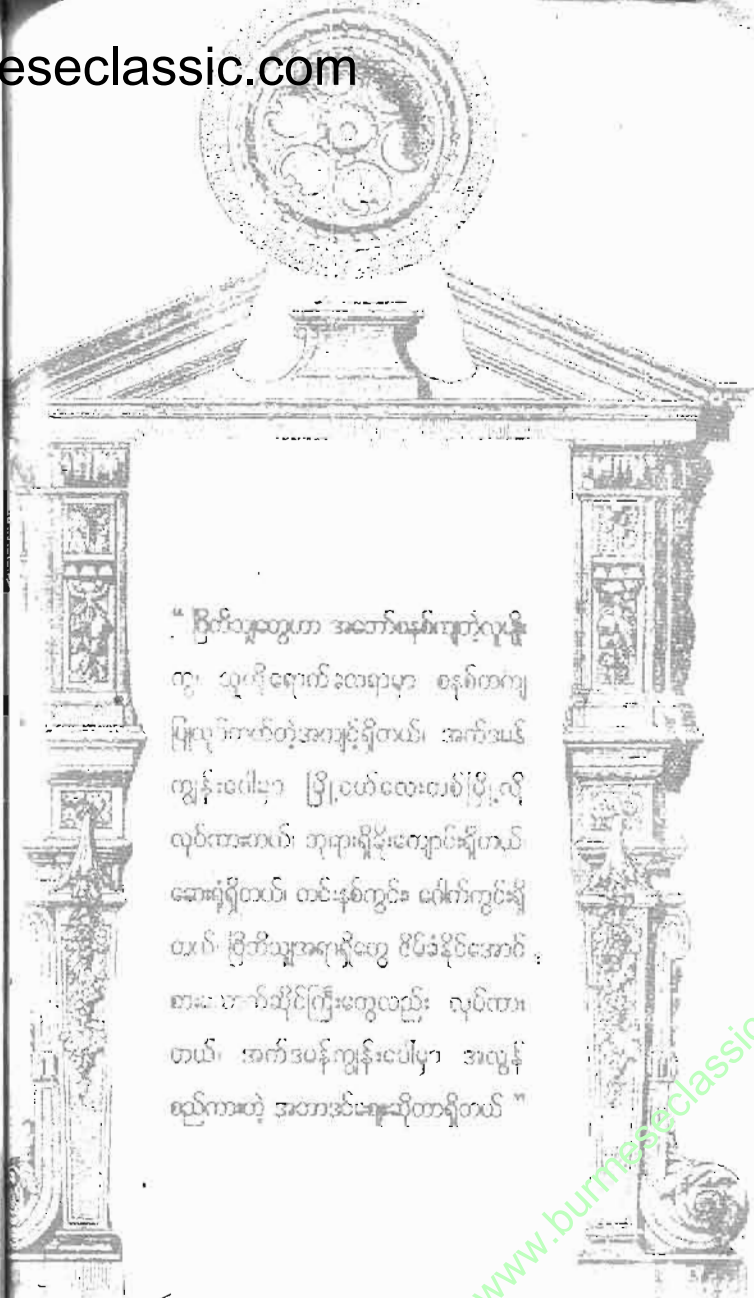 eseclassic.com
“ ဗြိတိသျှတွေဟာ အတော်စနစ်ကျတဲ့လူမျိုး
ကွ၊ သူတို့ရောက်လေရာမှာ စနစ်တကျ
ပြုလုပ်တတ်တဲ့အကျင့်ရှိတယ်၊ အက်ဒမန်
ကျွန်းပေါ်မှာ မြို့ငယ်လေးတစ်မြို့လို
လုပ်ထားတယ်၊ ဘုရားရှိခိုးကျောင်းရှိတယ်
ဆေးရုံရှိတယ်၊ တင်းနစ်ကွင်း၊ ဂေါက်ကွင်းရှိ
တယ်၊ ဗြိတိသျှအရာရှိတွေ ဇိမ်ခံနိုင်အောင်
စားသောက်ဆိုင်ကြီးတွေလည်း လုပ်ထား
တယ်၊ အက်ဒမန်ကျွန်းပေါ်မှာ အလွန်
စည်ကားတဲ့ အဘာဒင်ဈေးဆိုတာရှိတယ် ”
www.burmeseclassic